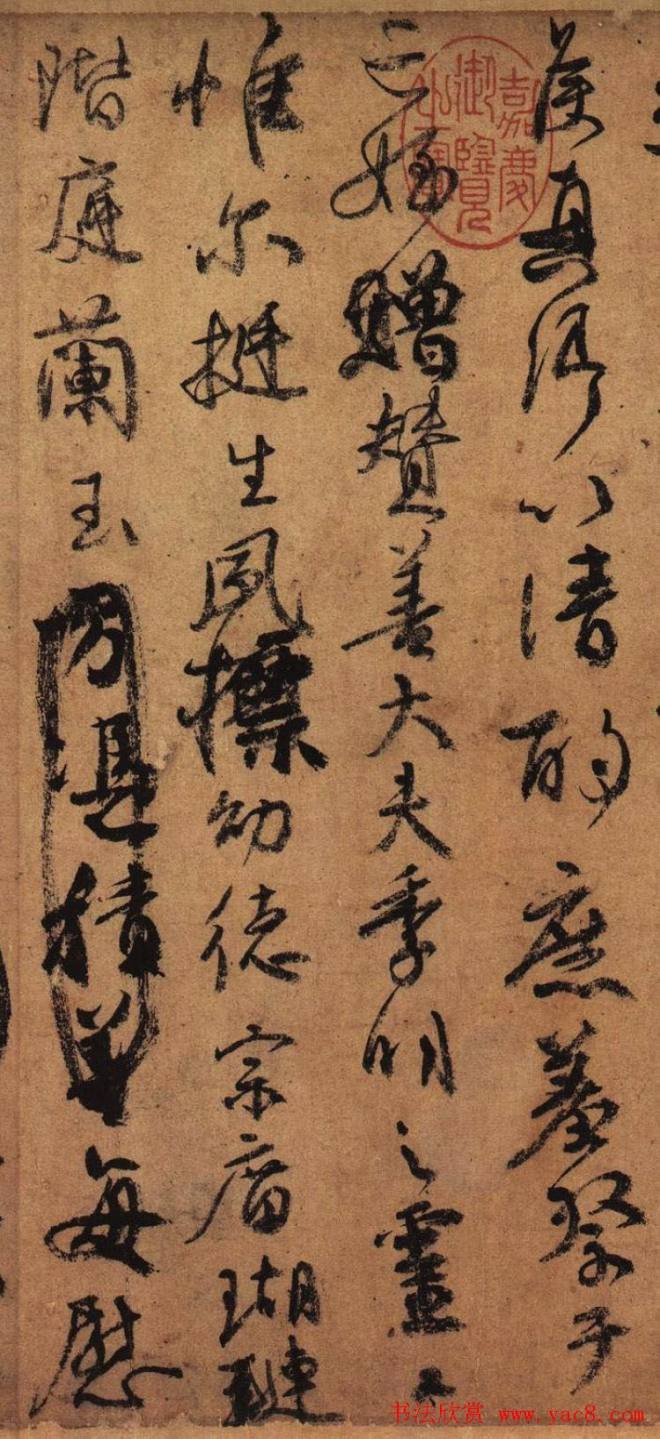 侯真卿以清酌庶羞祭于
亡姪贈贊善大夫季明之靈曰
惟尔挺生夙標幼德宗廟瑚璉
階庭蘭玉方憑積善每慰
嘉慶御覽之寶
书法欣赏 www.yac8.com